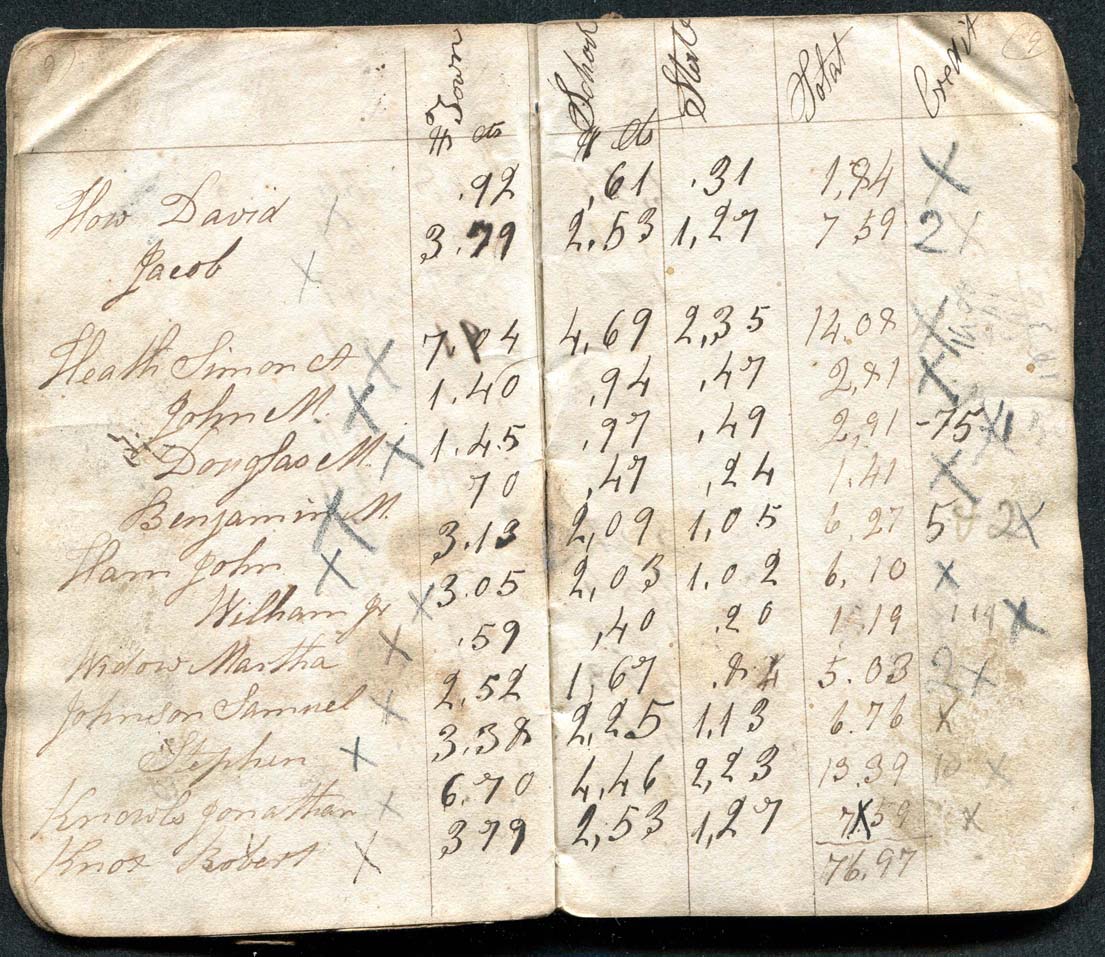 9) Town School State Total Credit (9
$ cts $ cts
How David X .92 ,61 .31 1,84 X
Jacob X 3.79 2,53 1,27 7.59 2 X
Heath Simon A X 7.04 4,69 2,35 14.08 X
John M. X 1.40 ,94 ,47 2,81 X
Douglas M. X 1.45 ,97 ,49 2,91 -75 X
Benjamin M. X 70 ,47 ,24 1.41 X
Ham John X 3.13 2,09 1,05 6,27 5 2X
William Jr X 3.05 2,03 1,02 6,10 X
Widow Martha X .59 ,40 .20 1.19 1.19 X
Johnson Samuel X 2,52 1,67 .84 5.03 2 X
Stephen X 3.38 2,25 1,13 6.76 X
Knowls Jonathan X 6.70 4,46 2,23 13.39 X
Knox Robert X 379 2,53 1,27 7.59 X
76.97